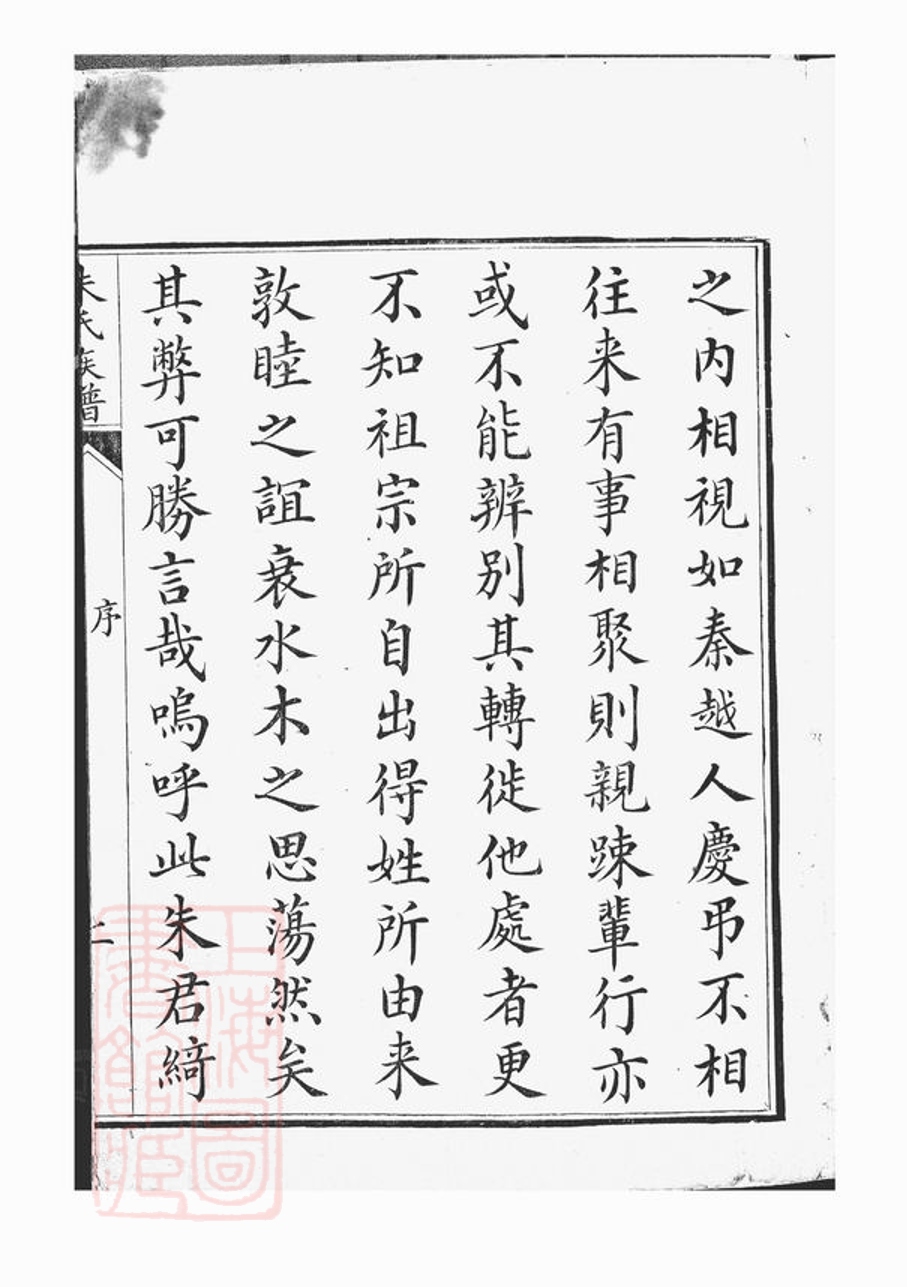 之内相視如秦越人慶弔不相
往来有事相聚則親踈輩行亦
或不能辨别其轉徙他處者更
不知祖宗所自出得姓所由来
敦睦之誼衰水木之思蕩然矣
其弊可勝言哉嗚呼此朱君綺
朱氏族譜
序
二
上海圖書館藏